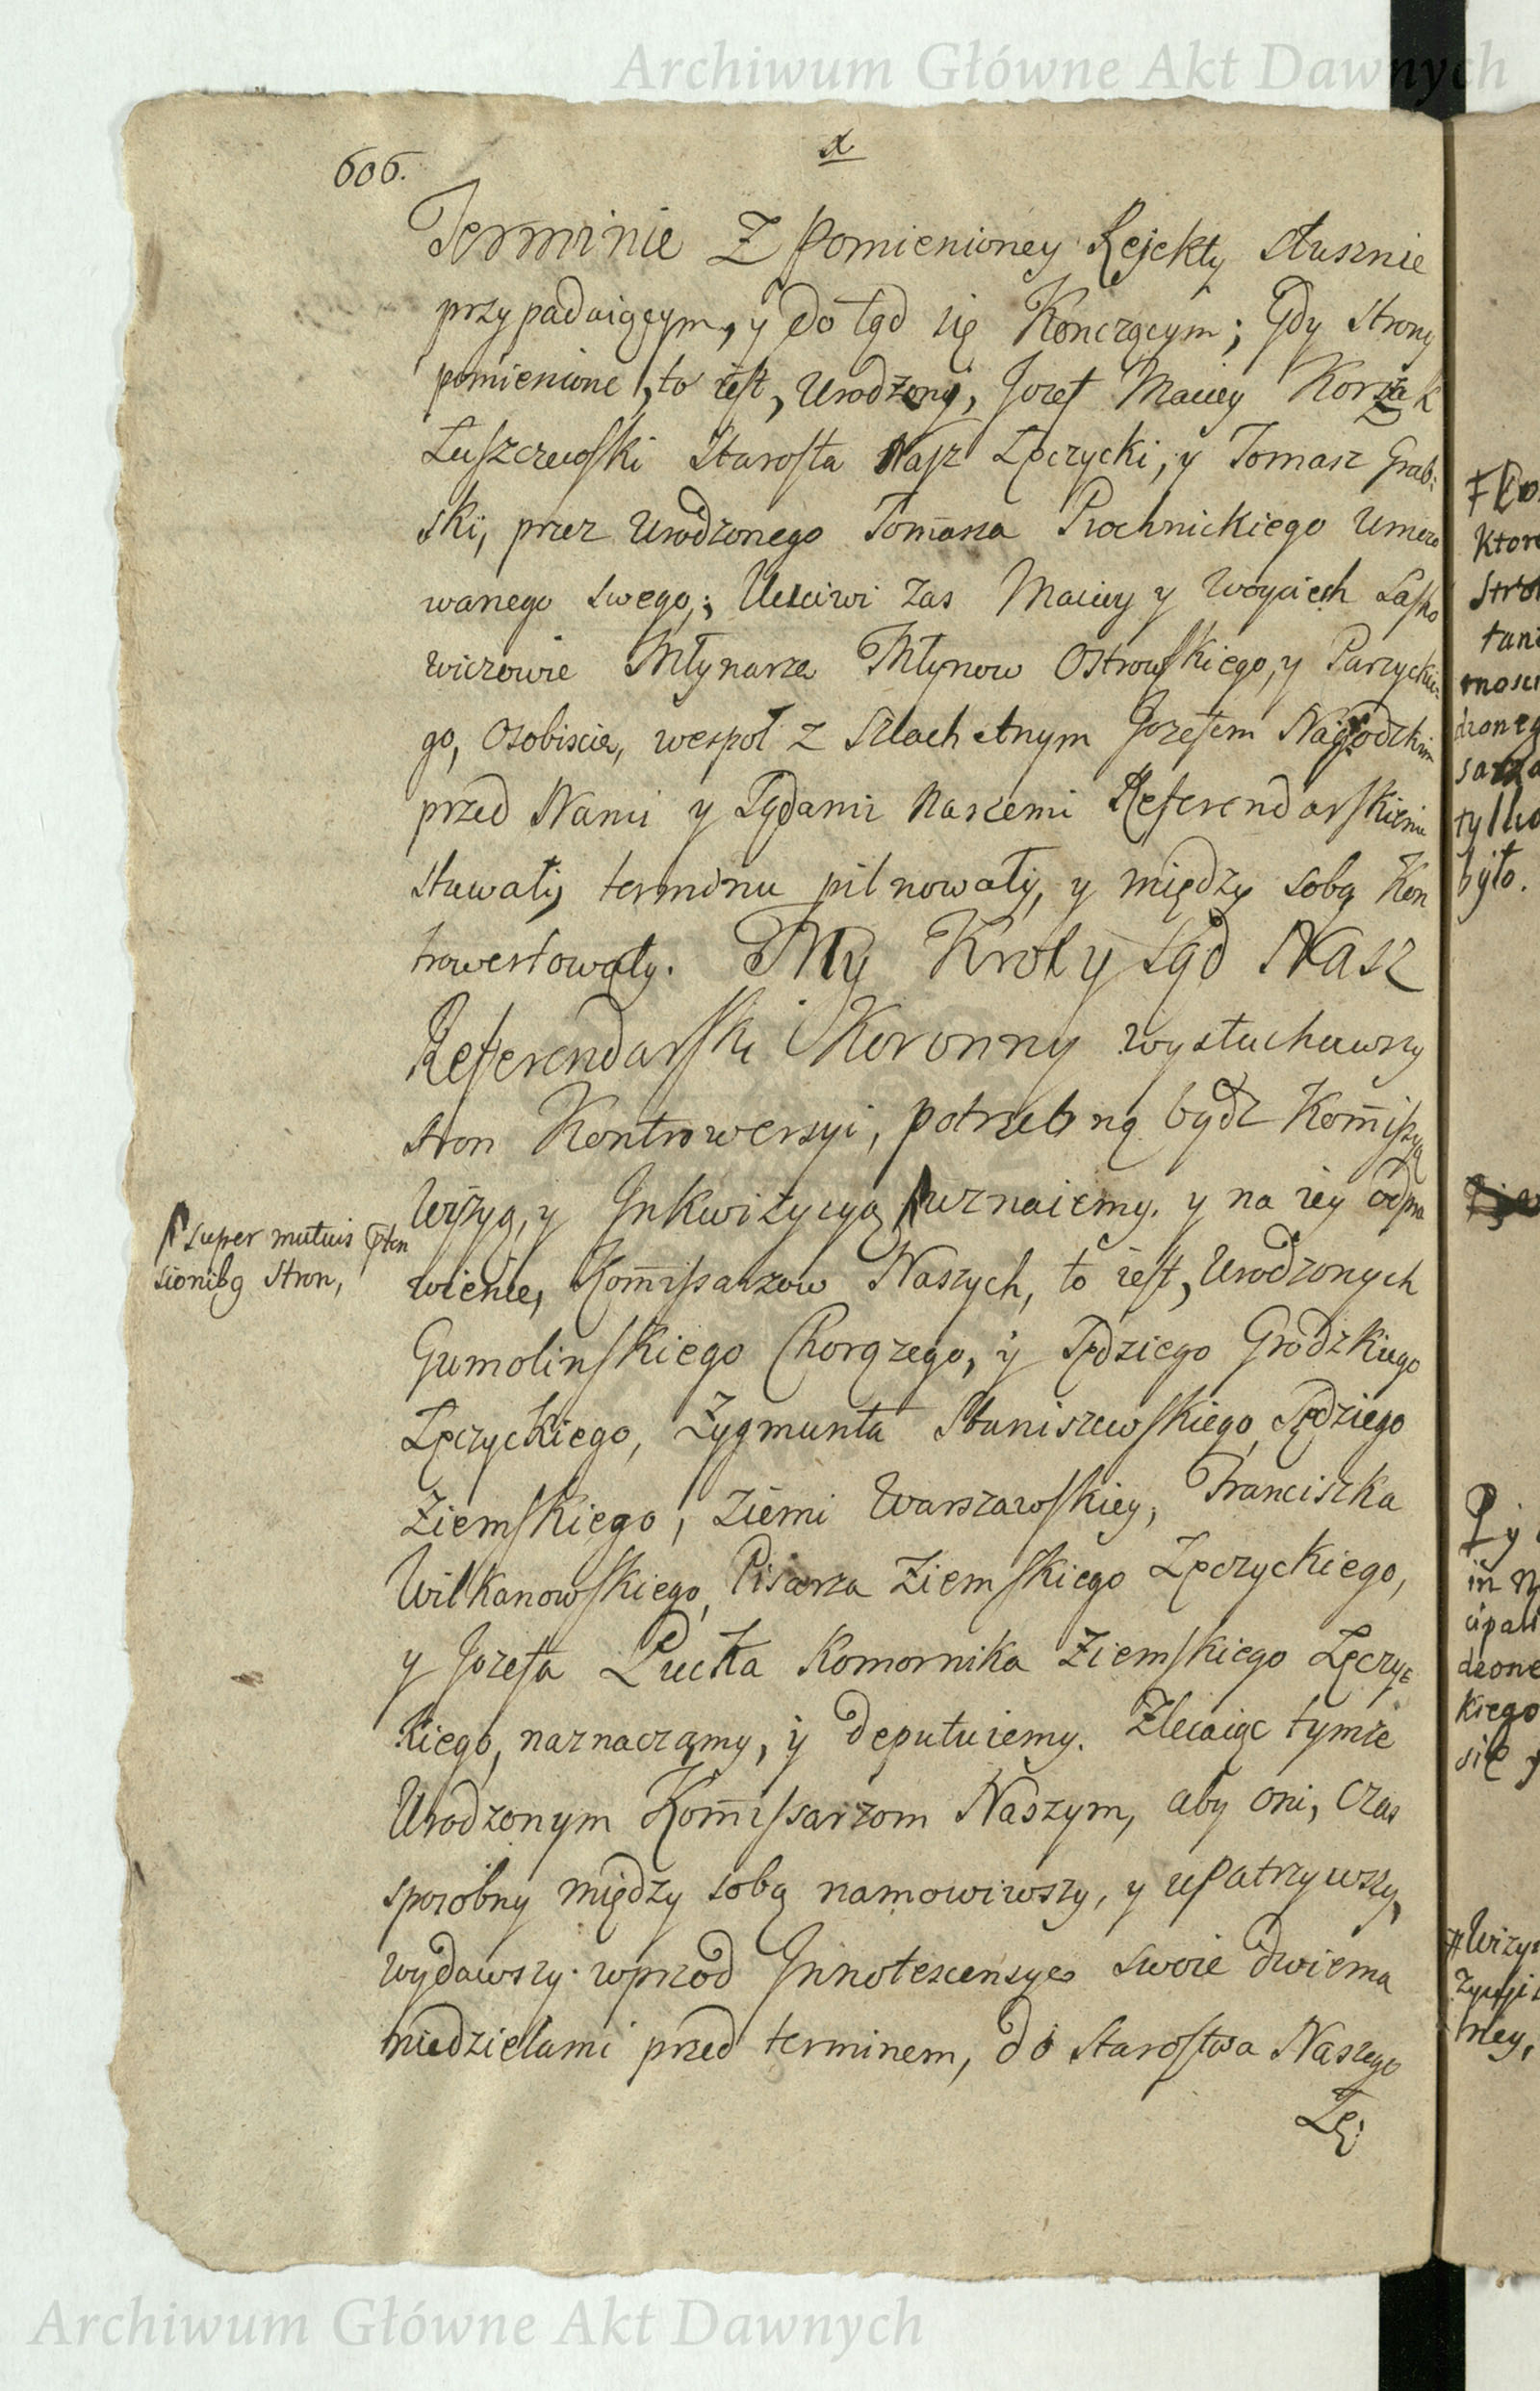 Archiwum Główne Akt Dawnych
606.
Terminie Z pomienioney Rejekty słusznie
przypadaiącym, y do tąd się Konczącym; Gdy strony
pomienione, to iest, Urodzony, Jozef Maciey Korzak
Łuszczewski Starosta Nasz Łęczycki, y Tomasz Grab:
ski, przez Urodzonego Tom̄asza Prochnickiego Umoco
wanego swego; Uczciwi zas Maciey y Woyciech Lasko
wiczowie Młynarze Młynow Ostrowskiego, y Parzyckie:
go, Osobiscie, wespoł z Szlachetnym Jozefem Nagrodzkim
przed Nami y Sądami Naszemi Referendarskiemi
stawały, terminu pilnowały, y między sobą Kon
trowertowały. My Krol y Sąd Nasz
Referendarski Koronny wysłuchawszy
stron Kontrowersyi, potrzebną bydz Kom̄issyą
Wizyą, y Inkwizycyą uznaiemy. y na iey odpra
super mutuis p̄ten
sionibq Stron,
wienie, Kom̄issarzow Naszych, to iest, Urodzonych
Gumolinskiego Chorązego, y Sędziego Grodzkiego
Łęczyckiego, Zygmunta Staniszewskiego, Sędziego
Ziemskiego, Ziemi Warszawskiey, Franciszka
Wilkanowskiego, Pisarza Ziemskiego Łęczyckiego,
y Jozefa Pucka Komornika Ziemskiego Łęczyc
kiego, naznaczamy, y deputuiemy. Zlecaiąc tymże
Urodzonym Kom̄issarzom Naszym, aby oni, czas
sposobny między sobą namowiwszy, y upatrzywszy,
wydawszy wprzod Innotescensye swoie dwiema
niedzielami przed terminem, do Starostwa Naszego
Łę:
Ktore
było.
kiego
się
Archiwum Główne Akt Dawnych